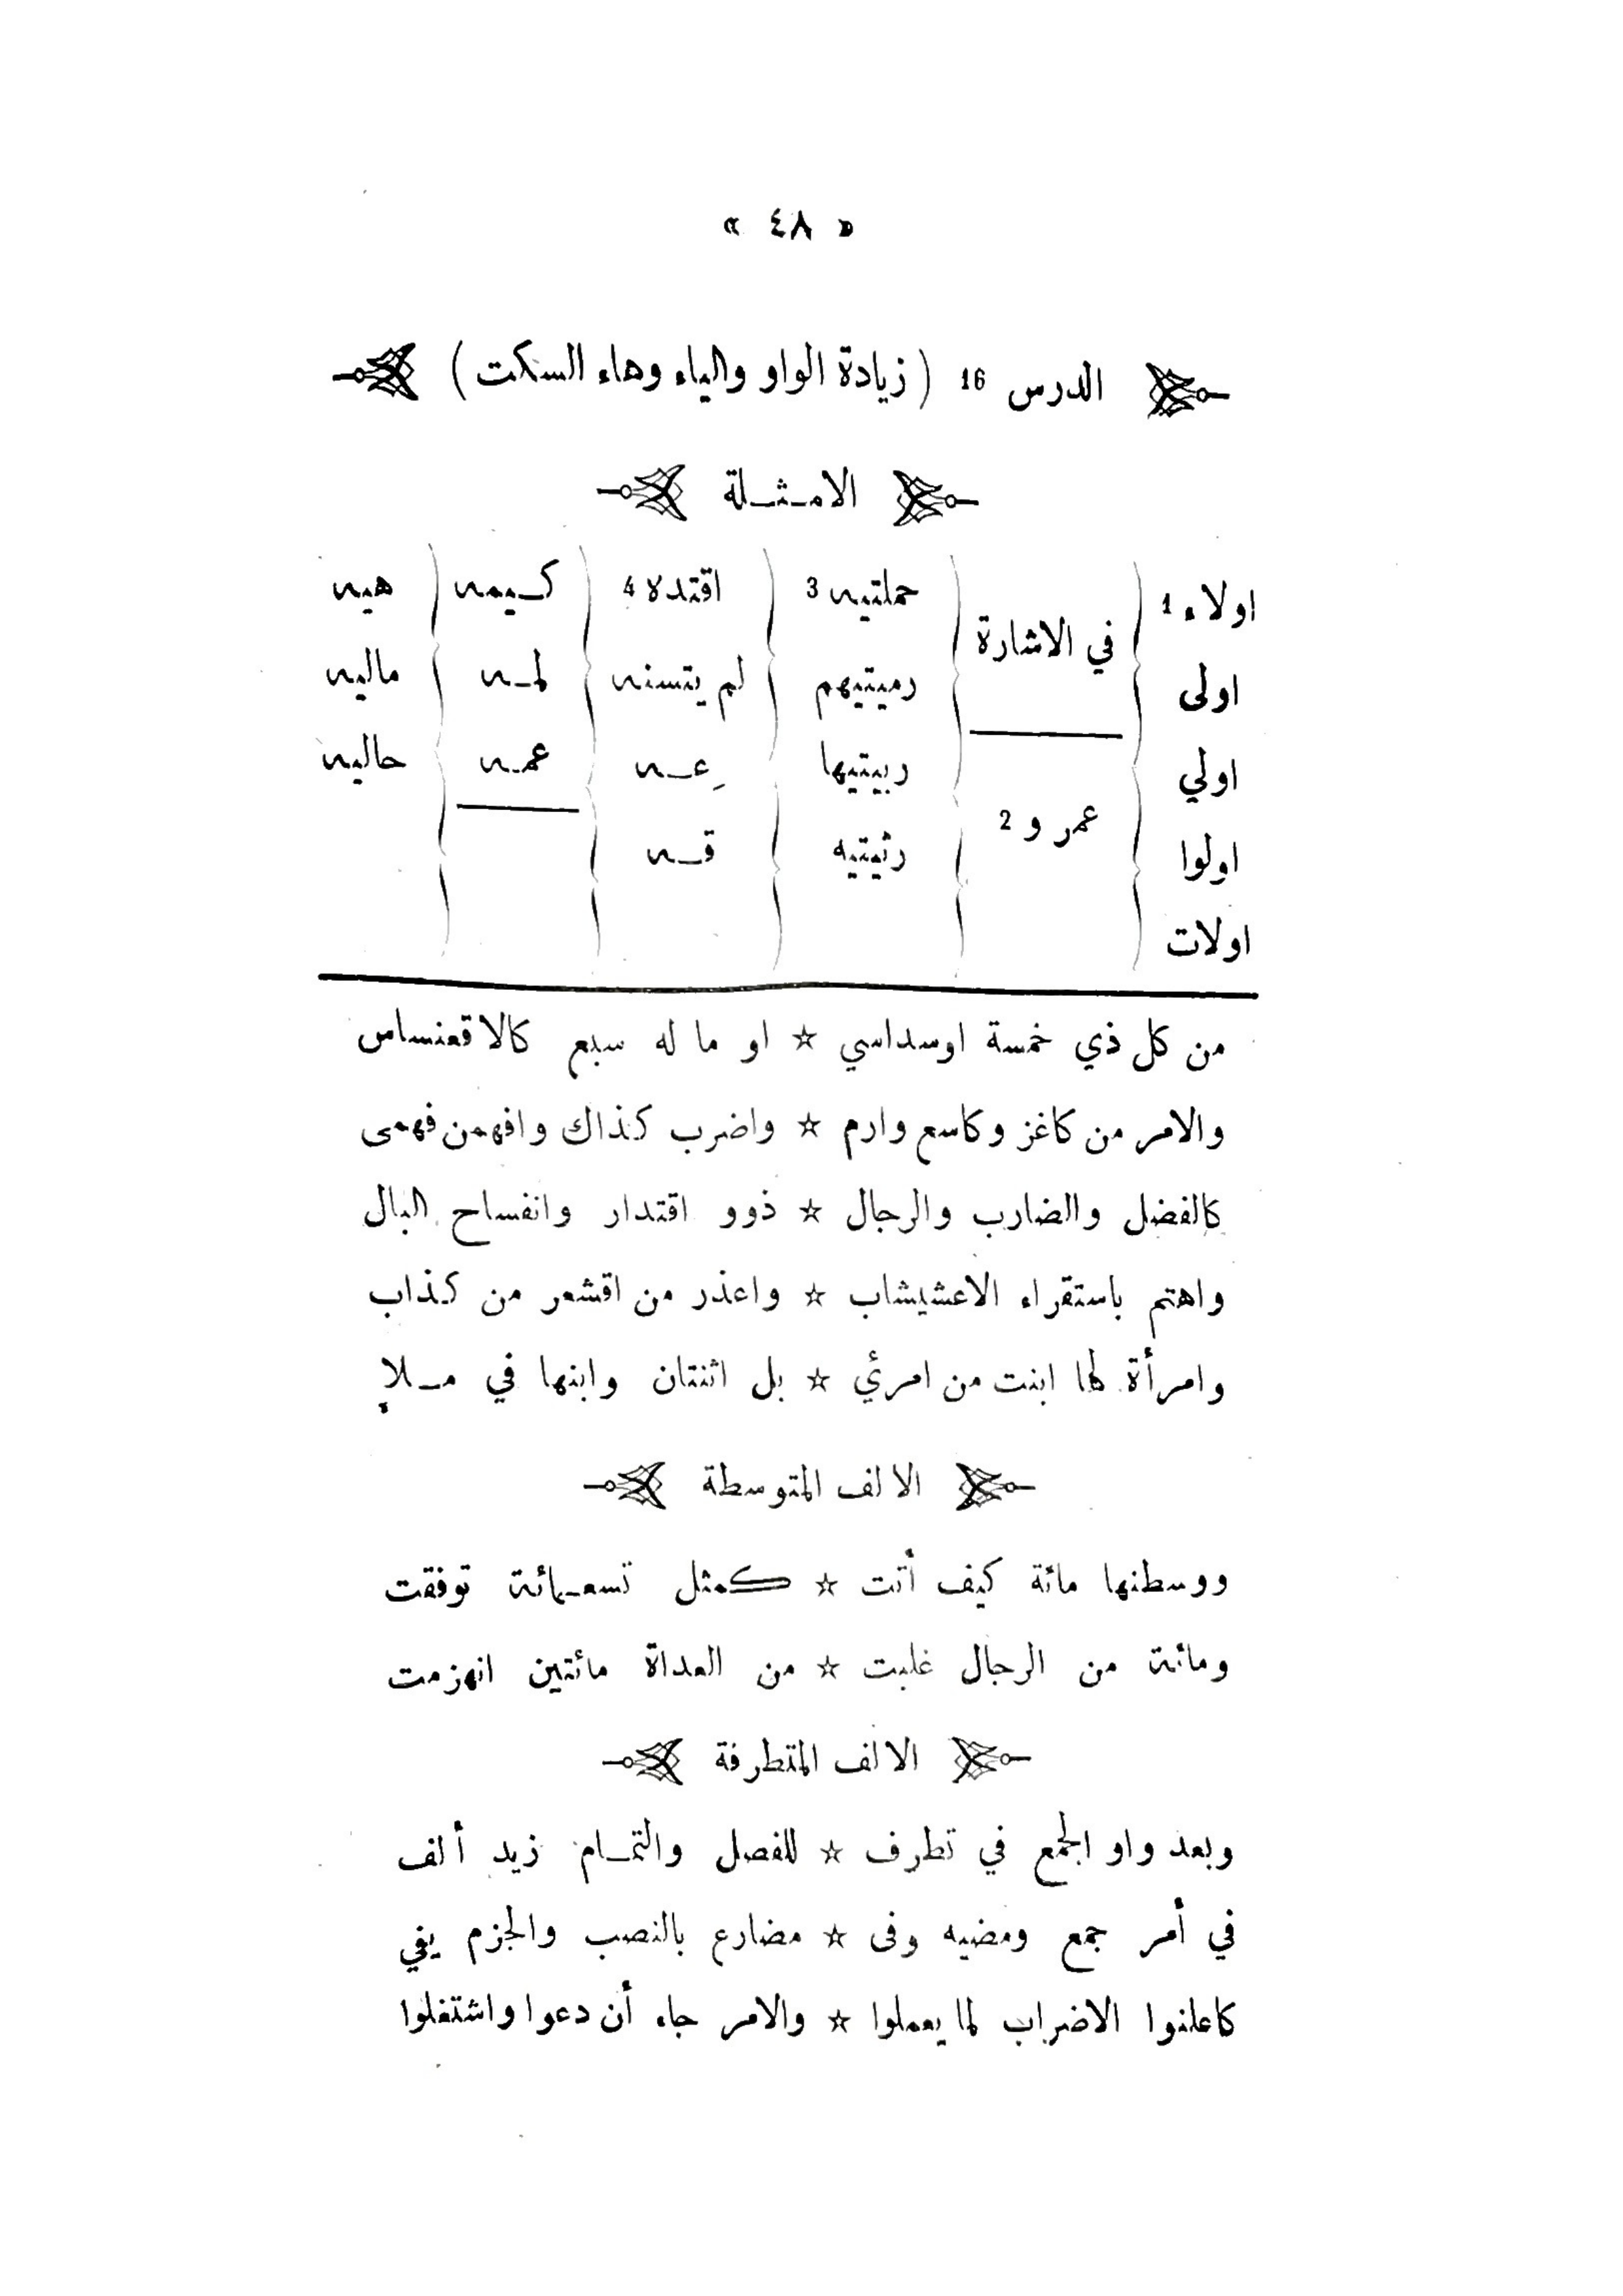 « ٤٨ »
الدرس 16 ( زيادة الواو والياء وهاء السكت )
الامثلة
اولاء 1 حملتيه 3 اقتده 4 كيمه هيه
في الاشارة
اولى رميتيهم لم يتسنه لمه ماليه
اولي ربيتيها عِه عمه حاليه
عمرو 2
اولوا رثيتيه قه
اولات
من كل ذي خمسة اوسداسي ☆ او ما له سبع كالاقعنساس
والامر من كاغز وكاسع وارم ☆ واضرب كذاك وافهمن فهمى
كالفضل والضارب والرجال ☆ ذوو اقتدار وانفساح البال
واهتم باستقراء الاعشيشاب ☆ واعذر من اقشعر من كذاب
وامرأة لها ابنت من امرئي ☆ بل اثنتان وابنها في ملإ
الالف المتوسطة
ووسطنها مائة كيف أتت ☆ كمثل تسعمائة توفقت
ومائة من الرجال غلبت ☆ من العداة مائتين انهزمت
الالف المتطرفة
وبعد واو الجمع في تطرف ☆ للفصل والتمام زيد ألف
في أمر جمع ومضيه وفى ☆ مضارع بالنصب والجزم يفي
كاعلنوا الاضراب لما يعملوا ☆ والامر جاء أن دعوا واشتغلوا